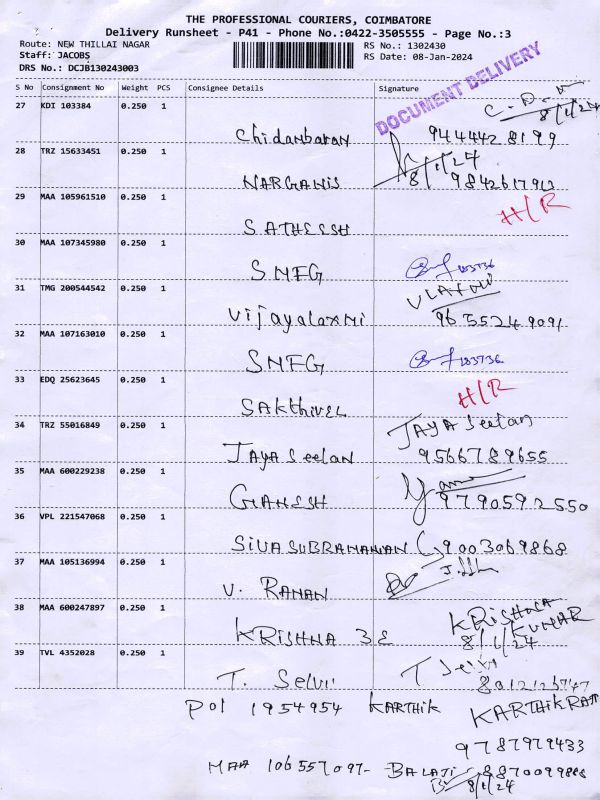 THE PROFESSIONAL COURIERS, COIMBATORE
Delivery Runsheet - P41 - Phone No.:0422-3505555 - Page No.:3
Route: NEW THILLAI NAGAR RS No.: 1302430
Staff: JACOBS RS Date: 08-Jan-2024
DRS No.: DCJB130243003
DOCUMENT DELIVERY
S No Consignment No Weight PCS Consignee Details Signature
27 KDI 103384 0.250 1
8/1/24
Chidanbaran 944442 8199
28 TRZ 15633451 0.250 1
8/1/24
NARGANIS 9842617913
29 MAA 105961510 0.250 1
H/R
SATHEESH
30 MAA 107345980 0.250 1
SMFG 183736
31 TMG 200544542 0.250 1
Vijayalaxmi 9655249091
32 MAA 107163010 0.250 1
SMFG 183736
33 EDQ 25623645 0.250 1
H/R
SAKthiVEL
34 TRZ 55016849 0.250 1
JAYA Seelan
JAYA Seelan 9566789655
35 MAA 600229238 0.250 1
GANESH 9790592550
36 VPL 221547068 0.250 1
SIVASUBRAMANIAN 9003069868
37 MAA 105136994 0.250 1
V. RAMAN
38 MAA 600247897 0.250 1
KRISHNA KUMAR
KRISHNA 3E 8/1/24
39 TVL 4352028 0.250 1
T. Selvi T Selvi
POI 1954954 KARTHIK KARTHIKRAJ
9787979433
MAA 106557097- BALAJI - 8870099888
8/1/24